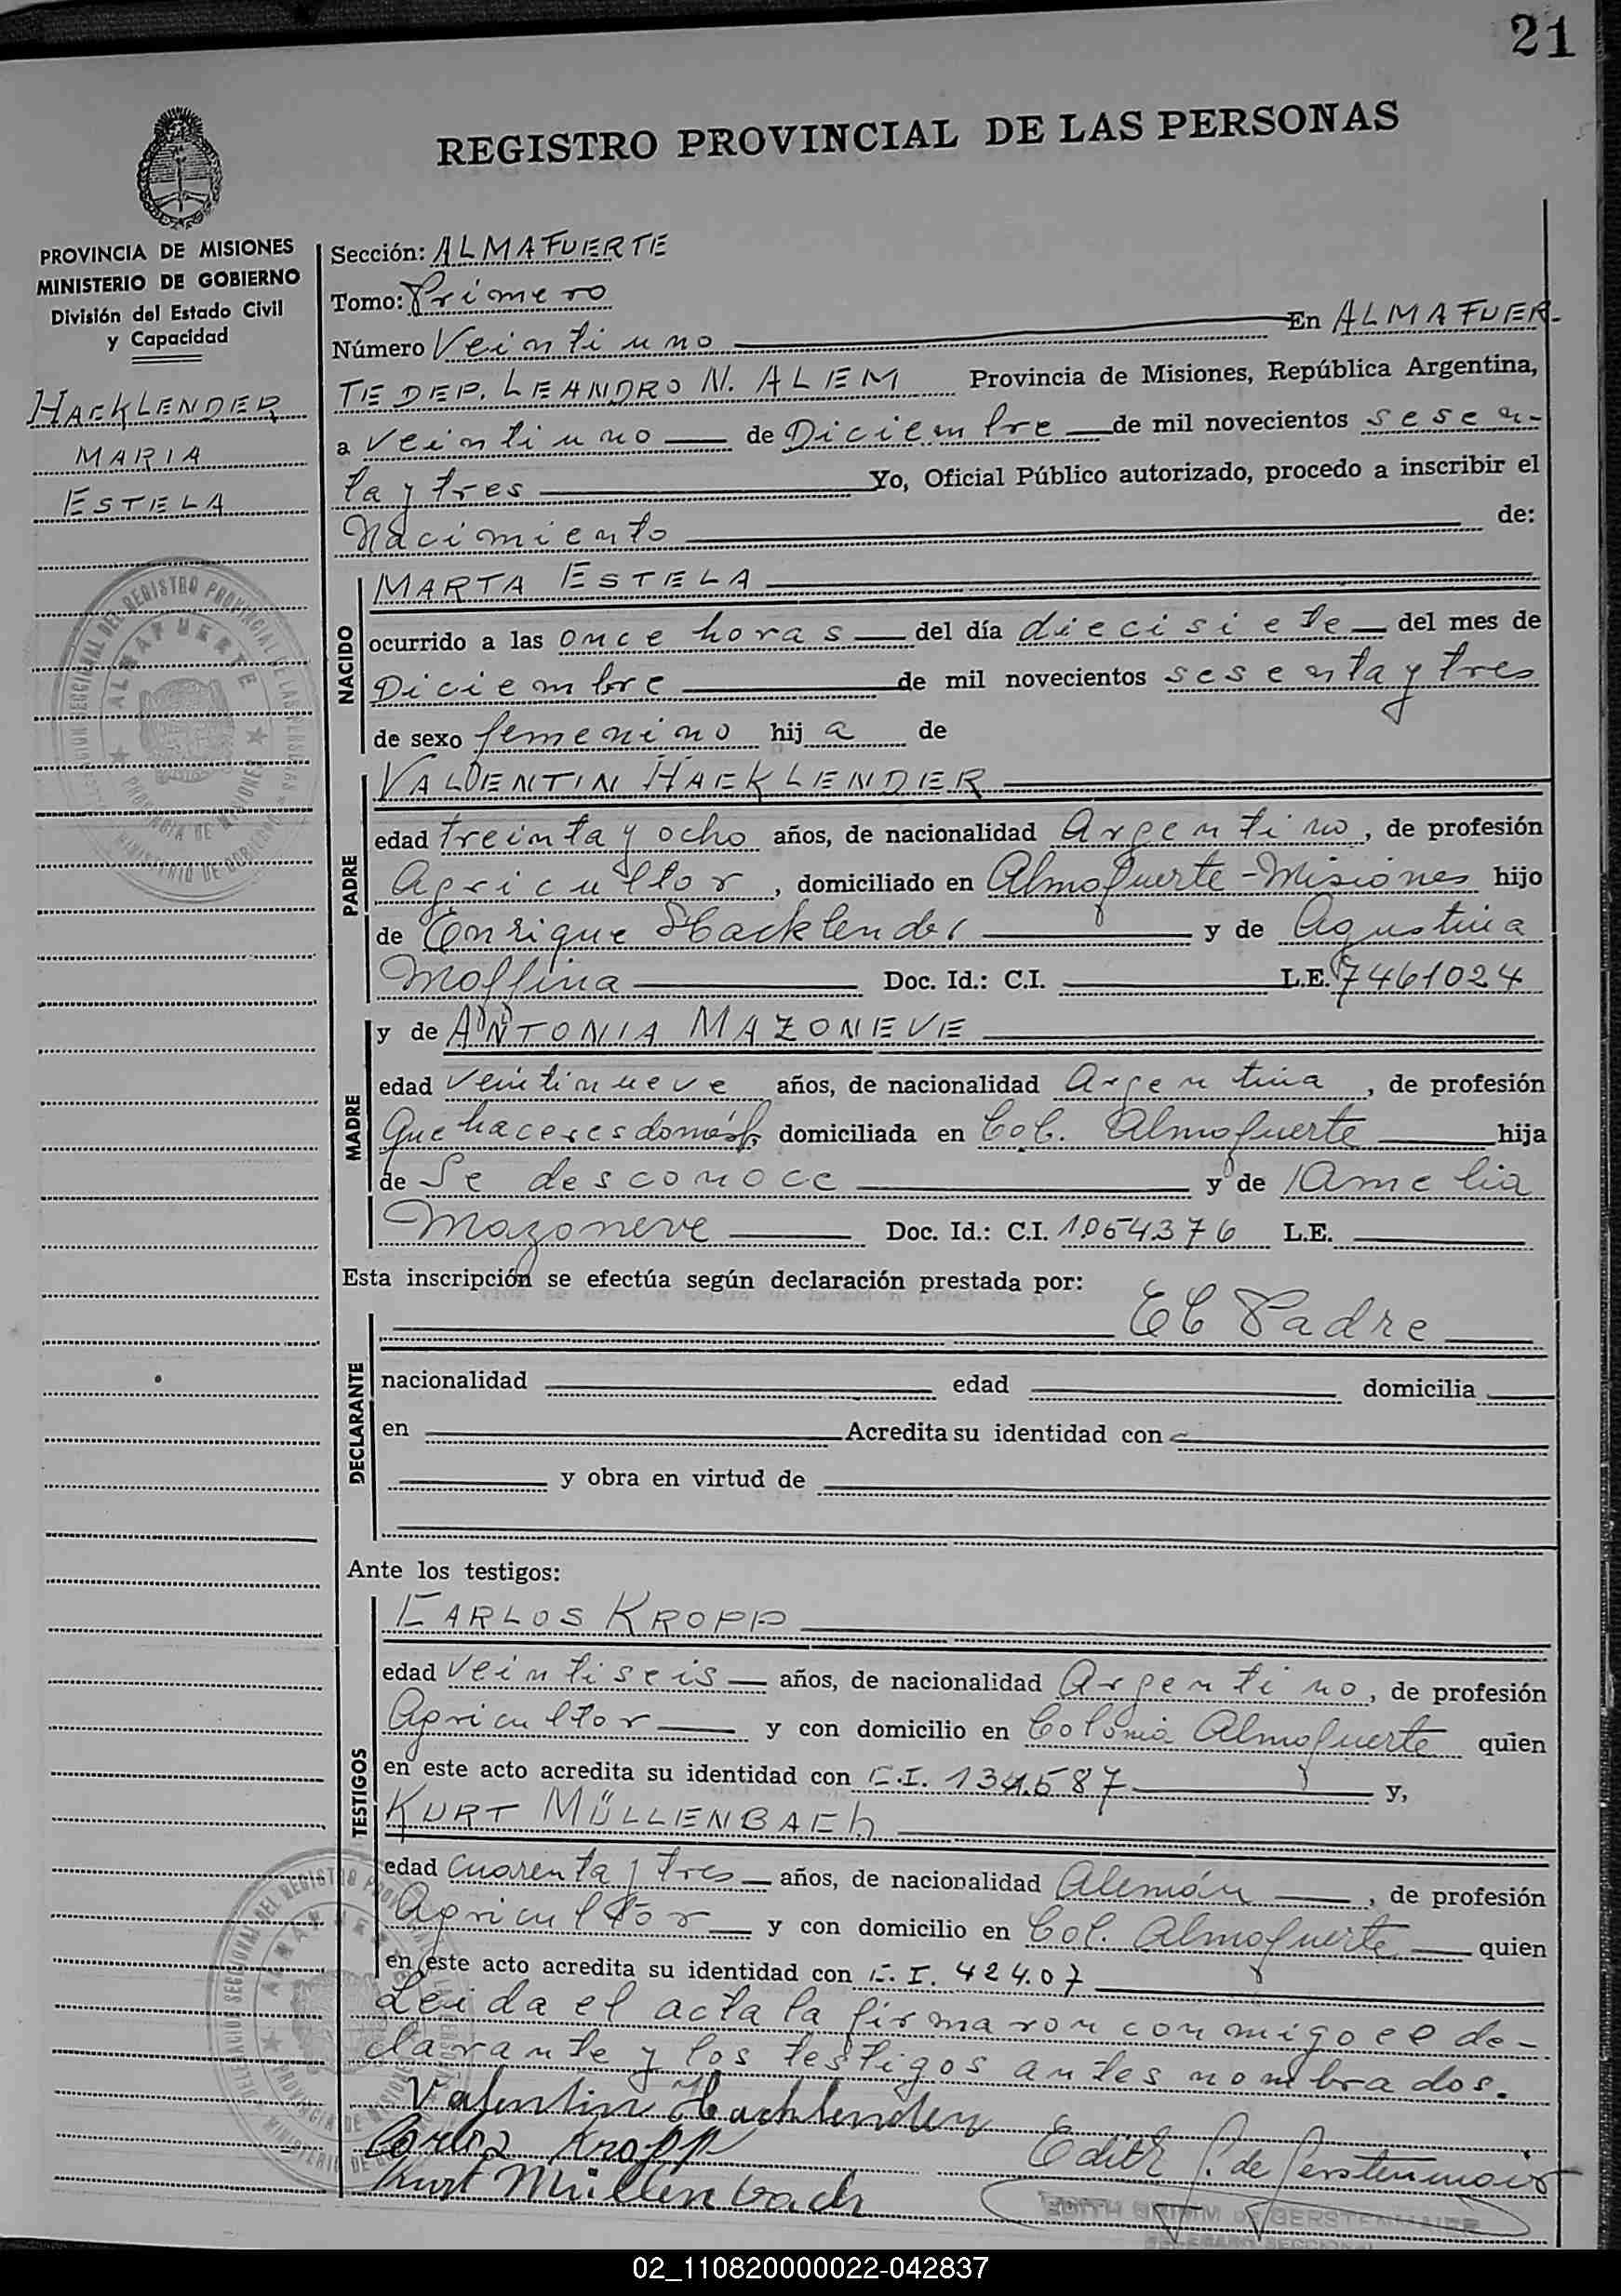 21
REGISTRO PROVINCIAL DE LAS PERSONAS
PROVINCIA DE MISIONES
MINISTERIO DE GOBIERNO
División del Estado Civil
y Capacidad
HACKLENDER
MARIA
ESTELA
Sección: ALMAFUERTE
Tomo: Primero
Número Veintiuno En ALMAFUER-
TE DEP. LEANDRO N. ALEM Provincia de Misiones, República Argentina,
a Veintiuno de Diciembre de mil novecientos sesen-
ta y tres Yo, Oficial Público autorizado, procedo a inscribir el
Nacimiento de:
NACIDO
MARTA ESTELA
ocurrido a las once horas del día diecisiete del mes de
Diciembre de mil novecientos sesenta y tres
de sexo femenino hija de
PADRE
VALENTIN HACKLENDER
edad treinta y ocho años, de nacionalidad Argentino, de profesión
Agricultor, domiciliado en Almafuerte-Misiones hijo
de Enrique Hacklender y de Agustina
Moffina Doc. Id.: C.I. L.E. 7461024
MADRE
y de ANTONIA MAZONEVE
edad veintinueve años, de nacionalidad Argentina, de profesión
Quehaceres domést. domiciliada en Col. Almafuerte hija
de Se desconoce y de Amelia
Mazoneve Doc. Id.: C.I. 1.054.376 L.E.
Esta inscripción se efectúa según declaración prestada por:
DECLARANTE
El Padre
nacionalidad edad domicilia
en Acredita su identidad con
y obra en virtud de
Ante los testigos:
TESTIGOS
CARLOS KROPP
edad veintiseis años, de nacionalidad Argentino, de profesión
Agricultor y con domicilio en Colonia Almafuerte quien
en este acto acredita su identidad con C.I. 134.587 y,
KURT MÜLLENBACh
edad cuarenta y tres años, de nacionalidad Alemán, de profesión
Agricultor y con domicilio en Col. Almafuerte quien
en este acto acredita su identidad con C.I. 424.07
Leida el acta la firmaron conmigo el de-
clarante y los testigos antes nombrados.
Valentin Hacklender
Carlos Kropp
Edith G. de Gerstenmaier
Kurt Müllenbach
EDITH GRIMM de GERSTENMAIER
02_110820000022-042837